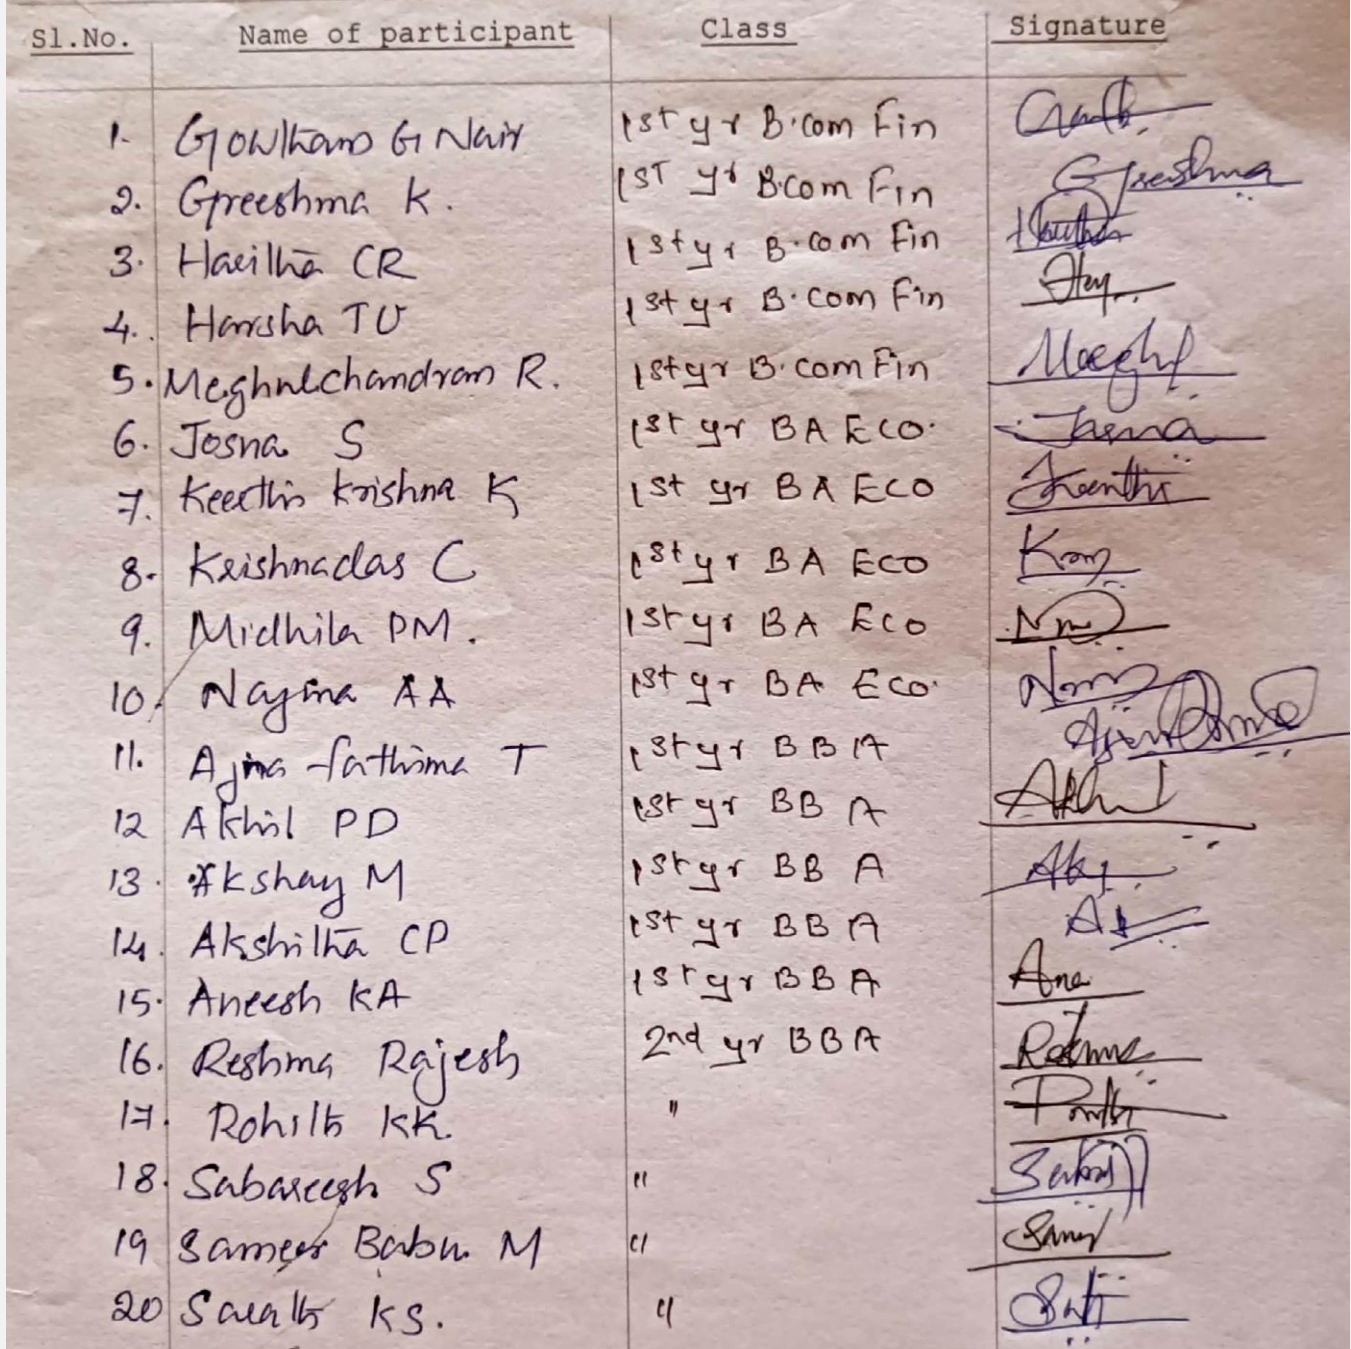 Sl.No. Name of participant Class Signature
1. Gowtham G Nair 1st yr B.com Fin
2. Greeshma K. 1ST yr B.com Fin Greeshma
3. Haritha CR 1st yr B.com Fin Haritha
4. Harsha TU 1st yr B.com Fin
5. Meghulchandran R. 1st yr B.com Fin Meghul
6. Josna S 1st yr BA ECO. Josna
7. Keerthi Krishna K 1st yr BA ECO Keerthi
8. Krishnadas C 1st yr BA ECO
9. Midhila PM. 1st yr BA ECO
10. Najma AA 1st yr BA ECO.
11. Ajna fathima T 1st yr BBA
12 Akhil PD 1st yr BBA Akhil
13. Akshay M 1st yr BBA
14. Akshitha CP 1st yr BBA
15. Aneesh KA 1st yr BBA Ane
16. Reshma Rajesh 2nd yr BBA
17. Rohith KK. "
18. Sabareesh S "
19 Sameer Babu M "
20 Sarath KS. "